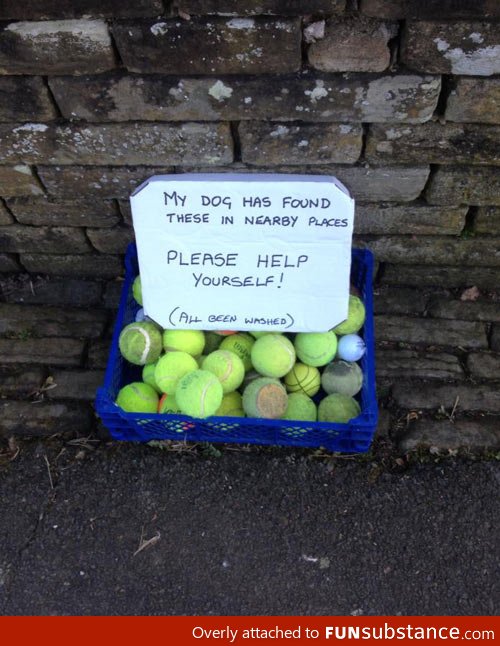 MY DOG HAS FOUND
THESE IN NEARBY PLACES
PLEASE HELP
YOURSELF!
(ALL BEEN WASHED)
Overly attached to FUNsubstance.com